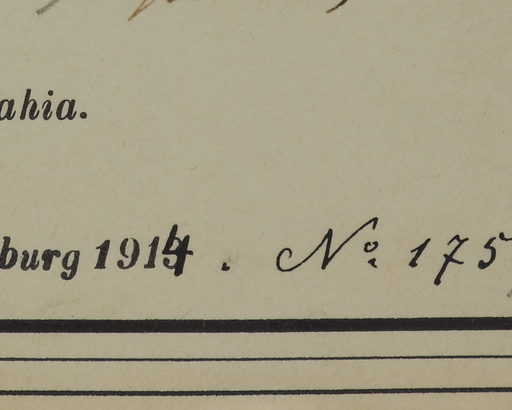 ahia.
burg 1914. No. 175